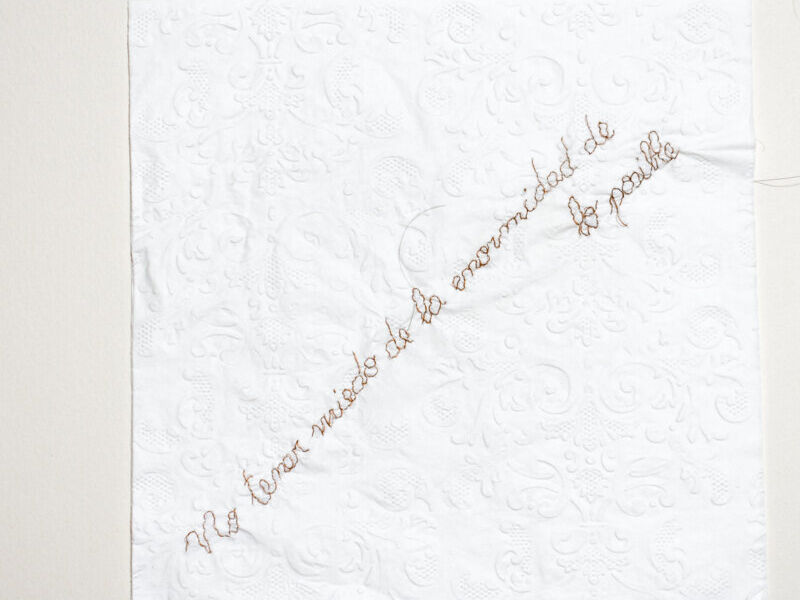 No tener miedo de la enormidad de
lo posible